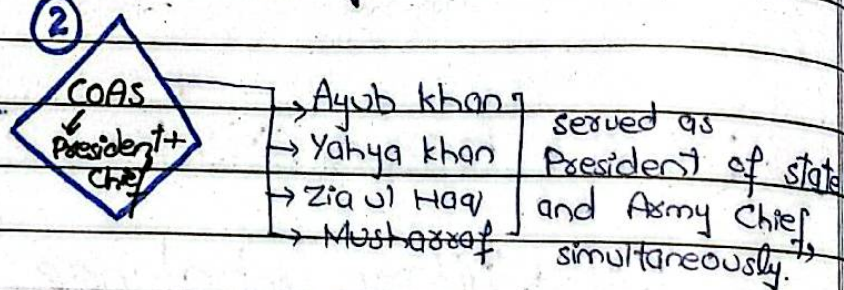 2
COAS
President +
Chief
→ Ayub khan
→ Yahya khan
→ Zia ul Haq
→ Musharraf
served as
President of state
and Army Chief,
simultaneously.